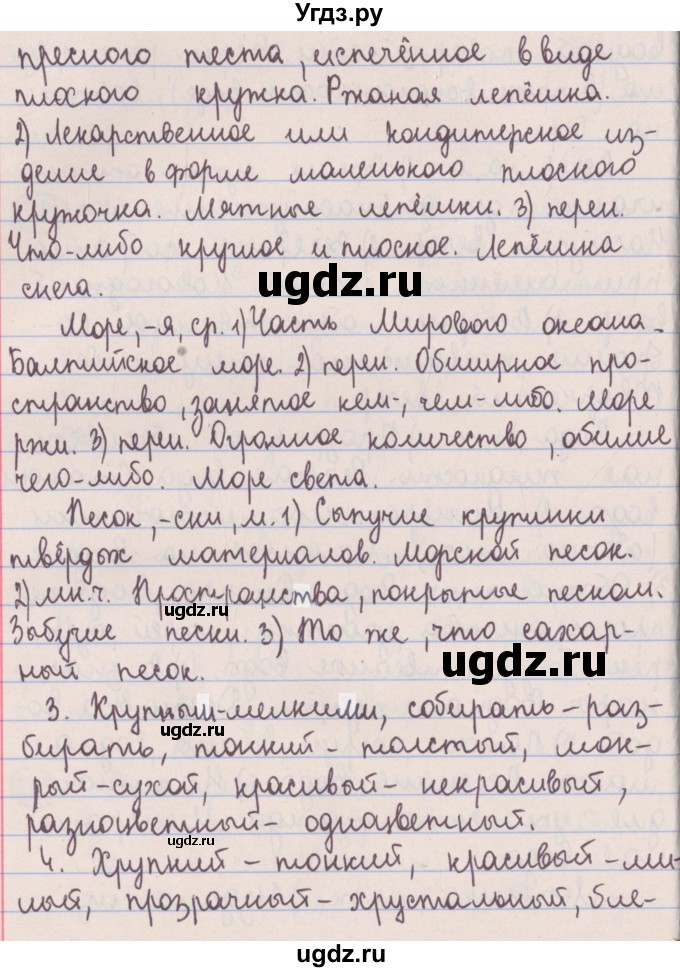 Угдз.ру
пресного теста, испечённое в виде
плоского кружка. Ржаная лепёшка.
2) Лекарственное или кондитерское из-
делие в форме маленького плоского
кружочка. Мятные лепёшки. 3) перен.
Что-либо круглое и плоское. Лепёшка
снега.
ugdz.ru
Море, -я, ср. 1) Часть Мирового океана.
Балтийское море. 2) перен. Обширное про-
странство, занятое кем-, чем-либо. Море
ржи. 3) перен. Огромное количество, обилие
чего-либо. Море света.
Песок, -ски, м. 1) Сыпучие крупинки
твёрдых материалов. Морской песок.
2) мн.ч. Пространства, покрытые песком.
ugdz.ru
Зыбучие пески. 3) То же, что сахар-
ный песок.
ugdz.ru
3. Крупный-мелкими, собирать-раз-
бирать, тонкий-толстый, мок-
рый-сухой, красивый-некрасивый,
разноцветный-одноцветный.
ugdz.ru
4. Хрупкий-тонкий, красивый-ми-
лый, прозрачный-хрустальный, бле-
ugdz.ru